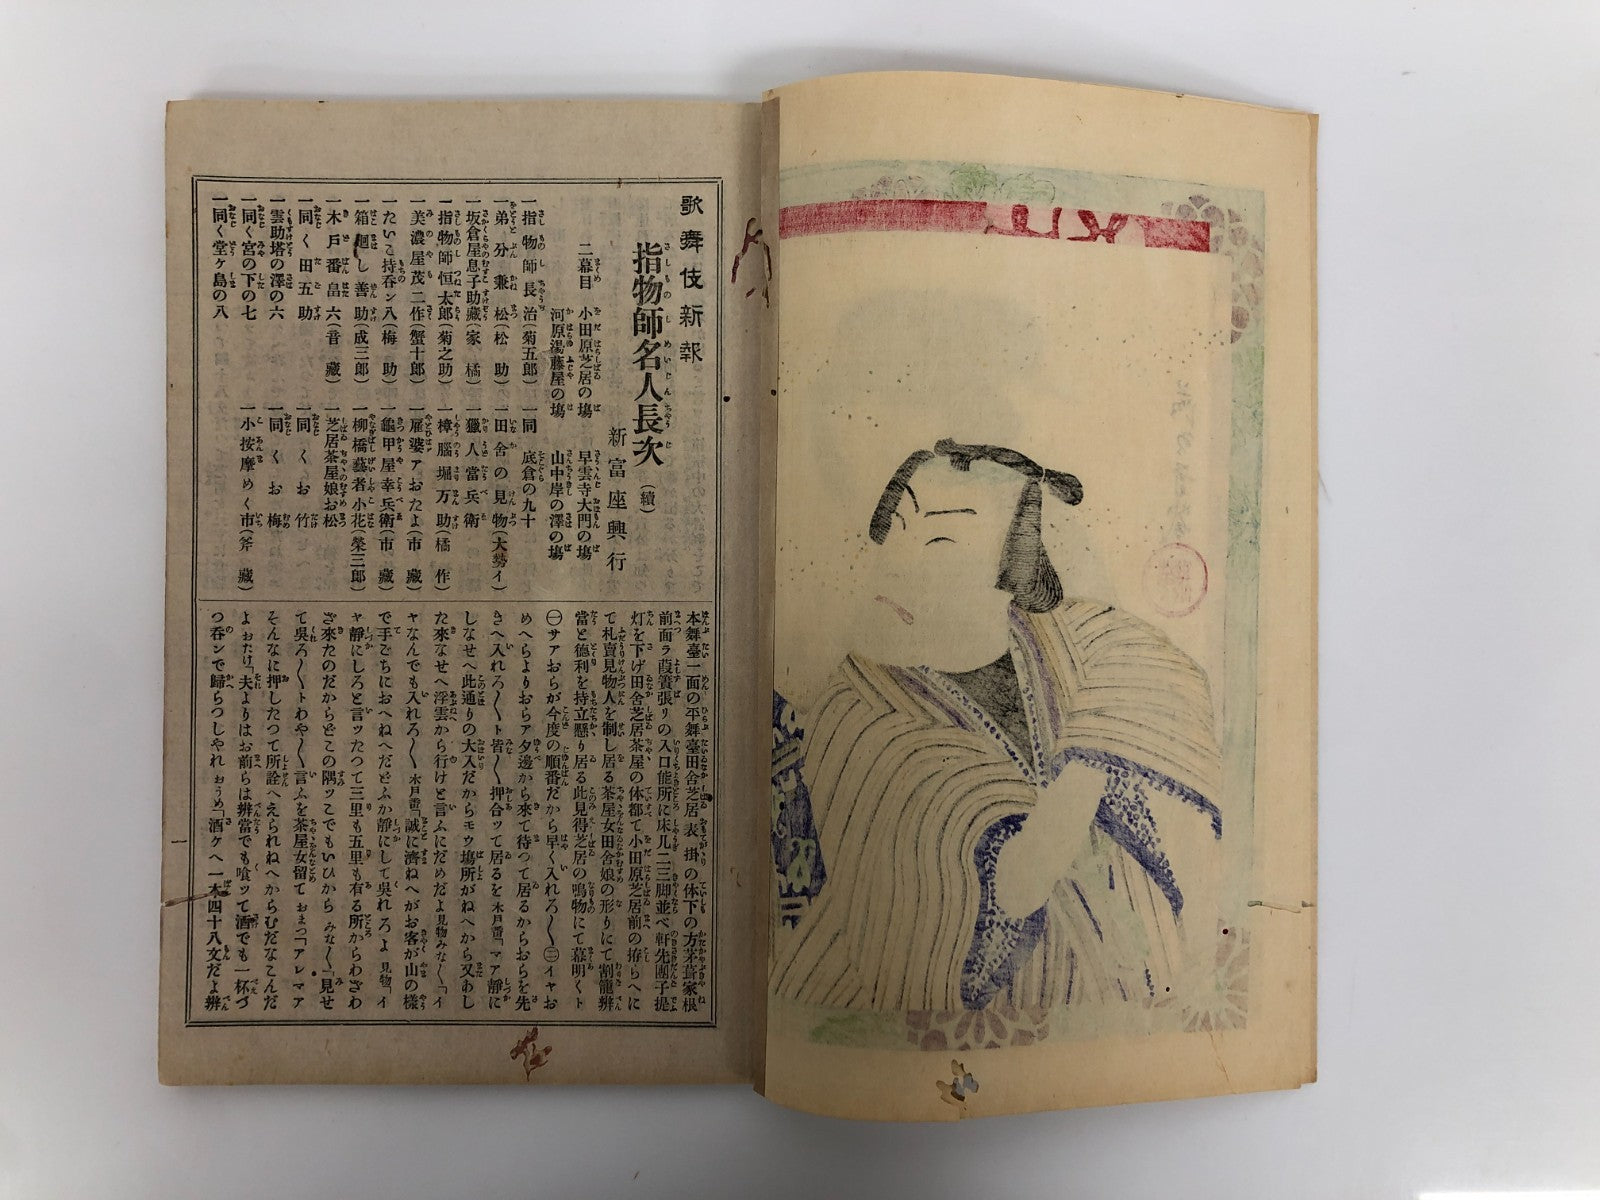 歌舞伎新報
指物師名人長次(續)
新富座興行
二幕目 小田原芝居の塲 早雲寺大門の塲
河原湯藤屋の塲 山中岸の澤の塲
一指物師長治(菊五郎)
一弟分兼松(松助)
一坂倉屋息子助藏(家橘)
一指物師恒太郎(菊之助)
一美濃屋茂二作(蟹十郎)
一たいこ持呑ン八(梅助)
一箱廻し善助(成三郎)
一木戸番畠六(音藏)
一同く田五助
一雲助塔の澤の六
一同く宮の下の七
一同く堂ケ島の八
一同 底倉の九十
一田舎の見物(大勢イ)
一獵人當兵衛
一樟腦堀万助(橘作)
一雇婆アおたよ(市藏)
一龜甲屋幸兵衛(市藏)
一柳橋藝者小花(榮三郎)
一芝居茶屋娘お松
一同くお竹
一同くお梅
一小按摩めく市(斧藏)
本舞臺一面の平舞臺田舎芝居表掛りの体下の方茅葺家根
前面ラ葭簀張リの入口能所に床几二三脚並べ軒先團子提
灯を下げ田舎芝居茶屋の体都て小田原芝居前の拵らへに
て札賣見物人を制し居る茶屋女田舎娘の形りにて割籠辨
當と德利を持立懸り居る此見得芝居の鳴物にて幕明くト
㊀サアおらが今度の順番だから早く入れろ〱㊁イヤお
めへらよりおらア夕邊から來て待つて居るからおらを先
きへ入れろ〱ト皆〱押合ッて居るを木戸番「マア靜に
しなせへ此通りの大入だからモウ塲所がねへから又あし
た來なせへ浮雲から行けと言ふにだめだよ見物みな〱「イ
ヤなんでも入れろ〱木戸番「誠に濟ねへがお客が山の樣
で手ごちにおへねへだどふか靜にして呉れろよ見物「イ
ヤ靜にしろと言ッたつて三里も五里も有る所からわざわ
ざ來たのだからどこの隅ッこでもいひからみな〱「見せ
て呉ろ〱トわや〱言ふを茶屋女留ておまつ「アレマア
そんなに押したつて所詮へえられねへからむだなこんだ
よおたけ「夫よりはお前らは辨當でも喰ッて酒でも一杯づ
つ呑ンで歸らつしやれおうめ「酒ケへ一本四十八文だよ辨
一